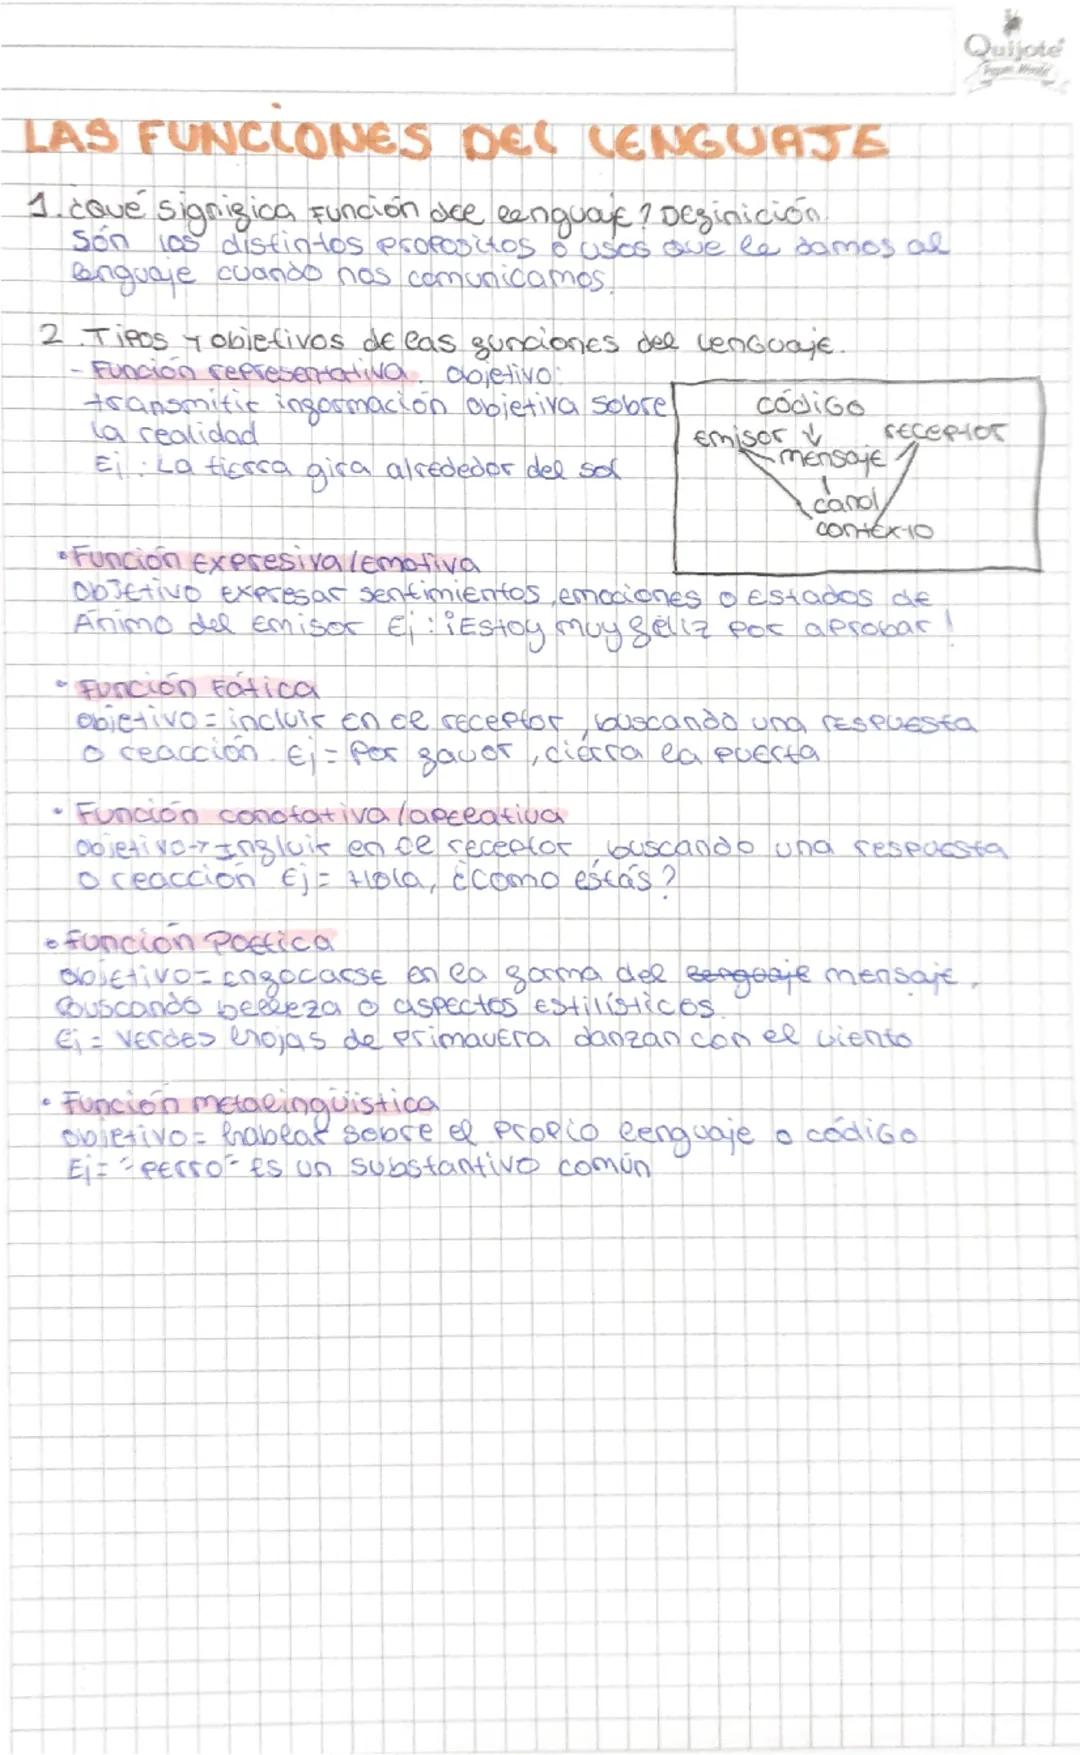 Quijote
LAS FUNCIONES DEL LENGUAJE
1. ¿Qué significa Función del lenguaje? Definición.
Són los distintos propositos o usos que le damos al
lenguaje cuando nos comunicamos.
2. Tipos y objetivos de las funciones del lenguaje.
- Función representativa. Objetivo:
transmitir información objetiva sobre
la realidad
Ej: La tierra gira alrededor del sol
código
emisor ↓ receptor
mensaje
canal
contexto
• Función Expresiva/emotiva
Objetivo expresar sentimientos, emociones o Estados de
Ánimo del emisor Ej: ¡Estoy muy féliz por aprobar!
• Función Fática
objetivo = incluir en el receptor, buscando una respuesta
o reacción. Ej = Por favor, ciérra la puerta
• Función conotativa/apelativa
objetivo → Influir en el receptor, buscando una respuesta
o reacción Ej = Hola, ¿como estás?
• Función Poética
objetivo = Enfocarse en la forma del lenguaje mensaje,
buscando belleza o aspectos estilísticos.
Ej = Verdes hojas de primavera danzan con el viento
• Función metalingüistica
objetivo = hablar sobre el propio lenguaje o código
Ej = "perro" es un substantivo común